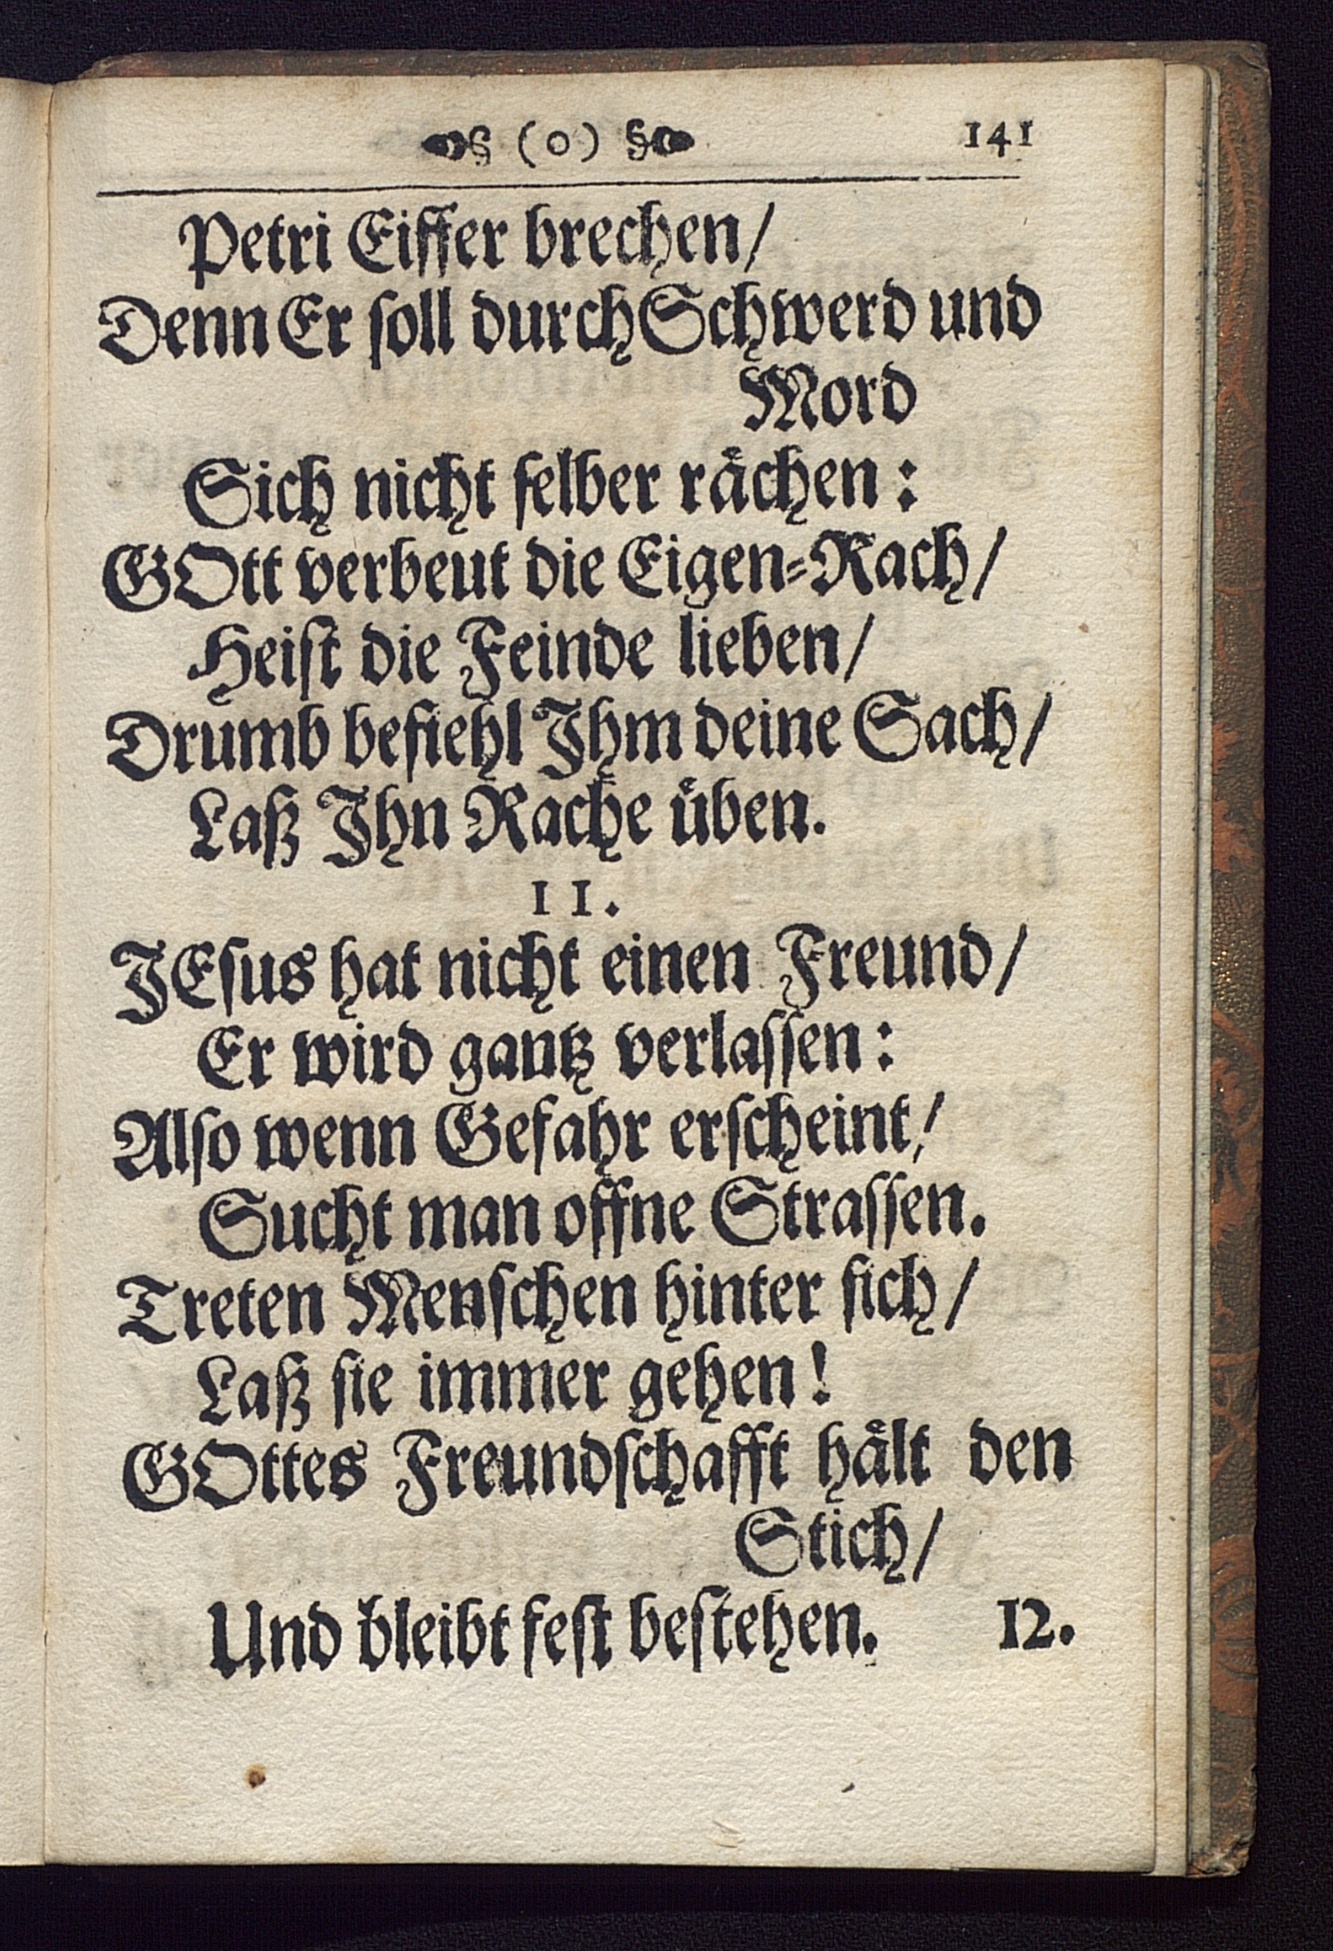 § (o) § 141
Petri Eiffer brechen/
Denn Er ſoll durch Schwerd und
Mord
Sich nicht ſelber raͤchen:
GOtt verbeut die Eigen⸗Rach/
Heiſt die Feinde lieben/
Drumb befiehl Ihm deine Sach/
Laß Ihn Rache uͤben.
11.
JEſus hat nicht einen Freund/
Er wird gantz verlaſſen:
Alſo wenn Gefahr erſcheint/
Sucht man offne Straſſen.
Treten Menſchen hinter ſich/
Laß ſie immer gehen!
GOttes Freundſchafft haͤlt den
Stich/
Und bleibt feſt beſtehen. 12.